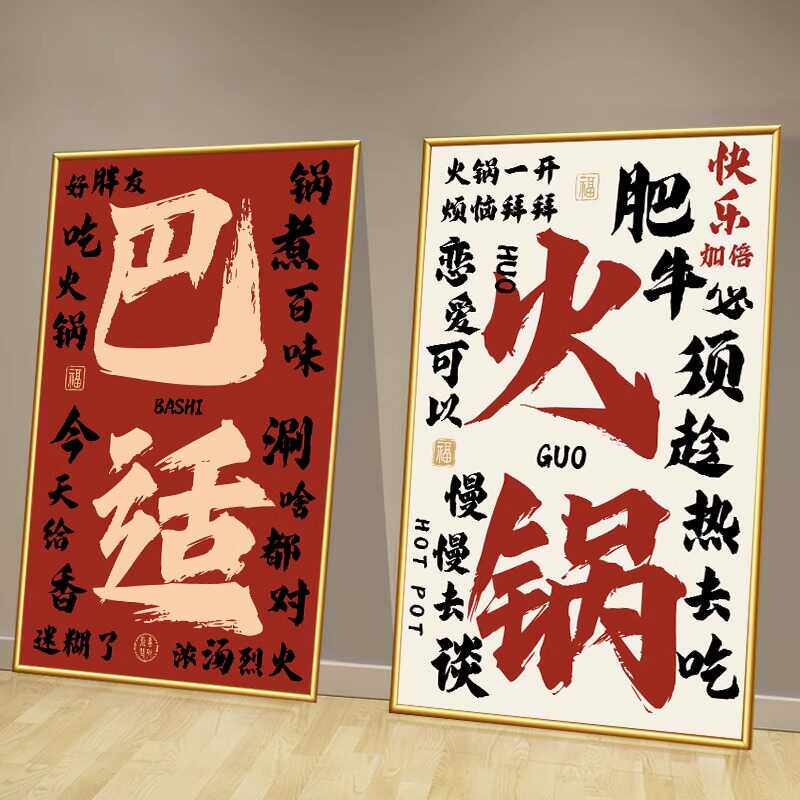 好胖友
吃火锅
福
巴适
BASHI
锅煮百味
涮啥都对
今天给香
迷糊了
浓汤烈火
火锅一开
烦恼拜拜
福
快乐
加倍
肥牛必须趁热去吃
恋爱可以
福
慢慢去谈
HUO
火
GUO
锅
HOT POT